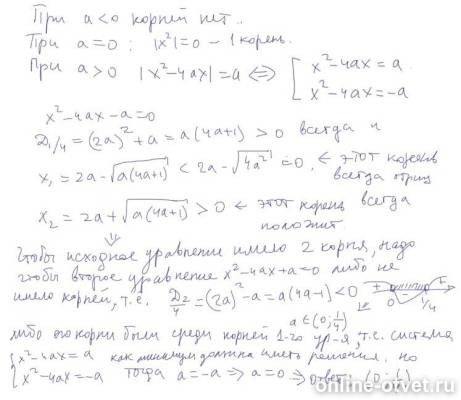 При a<0 корней нет.
При a=0: |x²|=0 – 1 корень.
При a>0 |x²-4ax|=a ⟺ [ x²-4ax=a
x²-4ax=-a
x²-4ax-a=0
D₁/4=(2a)²+a=a(4a+1)>0 всегда и
x₁=2a-√a(4a+1) < 2a-√4a² = 0. ← этот корень
всегда отриц
x₂=2a+√a(4a+1) > 0 ← этот корень всегда
положит.
⇓
Чтобы исходное уравнение имело 2 корня, надо
чтобы второе уравнение x²-4ax+a=0 либо не
имело корней, т.е. D₂/4=(2a)²-a=a(4a-1)<0
+ - + 0 1/4
a∈(0;1/4)
либо его корни были среди корней 1-го ур-я, т.е. система
{ x²-4ax=a как минимум должна иметь решения, но
x²-4ax=-a тогда a=-a ⇒ a=0 ⇒ ответ: (0;1/4)
online-otvet.ru